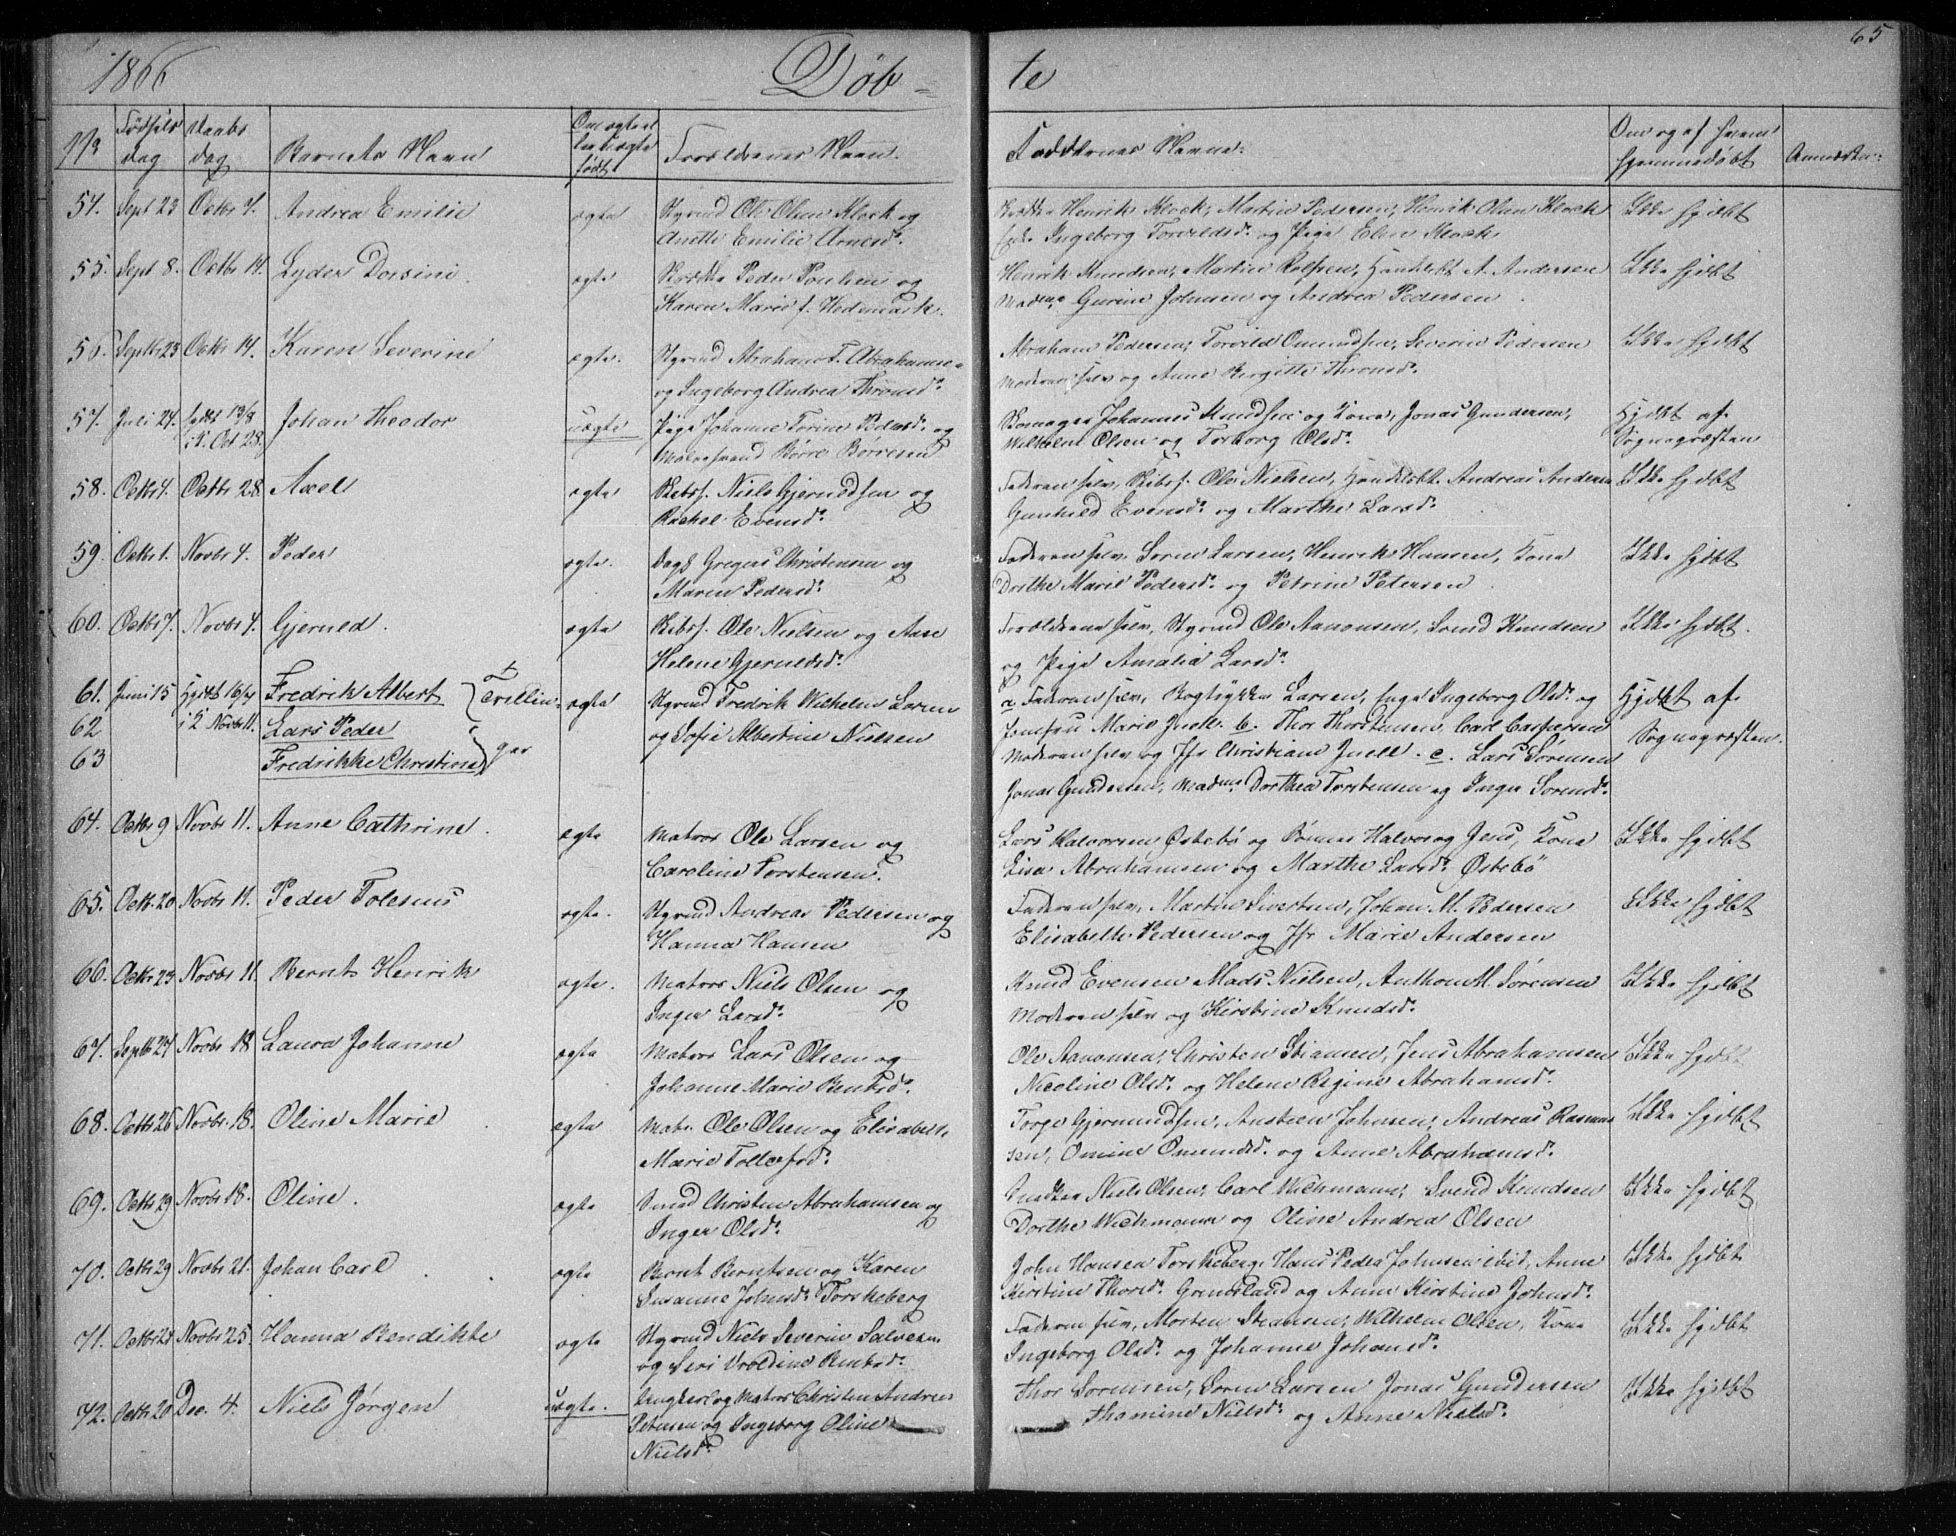 1866 Døb-te 65
No Fødsels dag Daabs dag Barnets Navn Om ægte el. uægte født Forældrenes Navn. Faddernes Navne. Om og af hvem hjemmedøbt
54. Sept 23 Octbr 7. Andrea Emilie ægte Styrmd Ole Olsen Klock og Henrik Klock, Martin Pedersen, Henrik Olsen Klock Ikke hjdbt
Anette Emilie Arnesd. Ingeborg Torvildsd. og Pige Elen Klock
55. Sept 8. Octbr 14. Lyder Dorsini ægte Peder Poulsen og Henrik Knudsen, Martin Rolfsen, Handelsbt A. Andersen Ikke hjdbt
Karen Marie f. Hedemark. Madme Gurine Johnsen og Andrea Pedersen
56. Septbr 23 Octbr 14. Karen Severine ægte. Styrmd Abraham T. Abrahams- Abraham Pedersen, Torvild Omundsen, Severin Pedersen Ikke hjdbt
og Ingeborg Andrea Thronsd. Moderen selv og Anne Birgitte Thronsd.
57. Juli 24. hjdbt 13/8 Johan Theodor uægte Pige Johanne Torine Pedersd. og Johannes Knudsen og Kone, Jonas Gundersen, Hjdbt af
i K. Oct 28. Børre Børresen Wilhelm Olsen og Torborg Olsd. Sognepræsten
58. Octbr 4. Octbr 28. Axel ægte Skibsf. Niels Gjeruldsen og Faderen selv, Skibsf. Ole Nielsen, Handelsbt. Andreas Andersen Ikke hjdbt
Rachel Evensd. Gunhild Evensd. og Marthe Larsd.
59. Octbr 1. Novbr 4. Peder ægte. Dags. Gregers Christensen og Faderen selv, Søren Larsen, Henrik Hansen, Kone Ikke hjdbt
Maren Pedersd. Dorthe Marie Pedersd. og Petrine Petersen
60. Octbr 7. Novbr 4. Gjerued. ægte Skibsf. Ole Nielsen og Aase Forældrene selv, Styrmd Ole Aanonsen, Svend Knudsen Ikke hjdbt.
Helene Gjeruldsd. og Pige Amalia Larsd.
61. Juni 15 Hjdbt 16/6 Fredrik Albert † Trillin- ægte Styrmd Fredrik Wilhelm Larsen a. Faderen selv, Larsen, Enge Ingeborg Olsd. og Hjdbt af
62 i K Novbr 11. Lars Peder og Sofie Albertine Nielsen Jomfru Marie Juell. b. Thor Thorstensen, Carl Caspersen Sognepræsten.
63 Fredrikke Christine ger Moderen selv og Jfr Christiane Juell. c. Lars Sørensen
Jonas Gundersen, Madme Dorthea Torstensen og Inger Sørensd.
64. Octbr 9 Novbr 11. Anne Cathrine. ægte Matros Ole Larsen og Lars Halvorsen Østebø og Sønner Halvor og Jens, Kone Ikke hjdbt
Caroline Torstensen. Lisa Abrahamsen og Marthe Larsd. Østebö
65. Octb. 20 Novbr 11. Peder Tolesius ægte. Styrmd Andreas Pedersen og Faderen selv, Martin Sivertsen, Johan M. Pedersen Ikke hjdbt
Hanna Hansen Elisabeth Pedersen og Jfr Marie Andersen
66. Octbr 23 Novbr 11. Bernt Henrik ægte. Matros Niels Olsen og Knud Evensen Mads Nielsen, Anthon M. Sørensen Ikke hjdbt
Inger Larsd. Moderen selv og Kirstine Knudsd.
67. Septb 27 Novbr 18 Laura Johanne ægte Matros Lars Olsen og Ole Aanonsen, Christen Stiansen, Jens Abrahamsen Ikke hjdbt
Johanne Marie Bentsd. Nicoline Olsd. og Helene Regine Abrahamsd.
68. Octbr 26 Novbr. 18. Oline Marie ægte Matr. Ole Olsen og Elisabeth Torge Gjermundsen, Austeen Johnsen, Andreas Rasmus- Ikke hjdbt
Marie Tollefsd. sen, Omine Omundsd. og Anne Abrahamsd.
69. Octbr 29 Novbr 18. Oline. ægte Smed Christen Abrahamsen og Snedker Niels Olsen, Carl Wichmann, Svend Knudsen Ikke hjdbt
Inger Olsd. Dorthe Wichmann og Oline Andrea Olsen
70. Octbr 29 Novbr 21. Johan Carl ægte Bernt Berntsen og Karen John Hansen Torskeberg, Hans Peder Johnsen ibid, Anne Ikke hjdbt
Susanne Johnsd. Torskeberg Kirstine Thorsd. og Anne Kirstine Johnsd.
71. Octbr 21 Novbr 25. Hanna Bendikte ægte Styrmd Niels Severin Salvesen Faderen selv, Morten Stiansen, Wilhelm Olsen, Kone Ikke hjdbt
og Seri Vroldine Bentsd. Ingeborg Olsd. og Johanne Johansd.
72. Octbr 20 Dec. 4. Niels Jørgen uægte. Ungkarl og Matros Christen Andreas Thor Sørensen, Søren Larsen Jonas Gundersen Ikke hjdbt
Petersen og Ingeborg Oline Thomine Nielsd. og Anne Nielsd.
Nielsd.